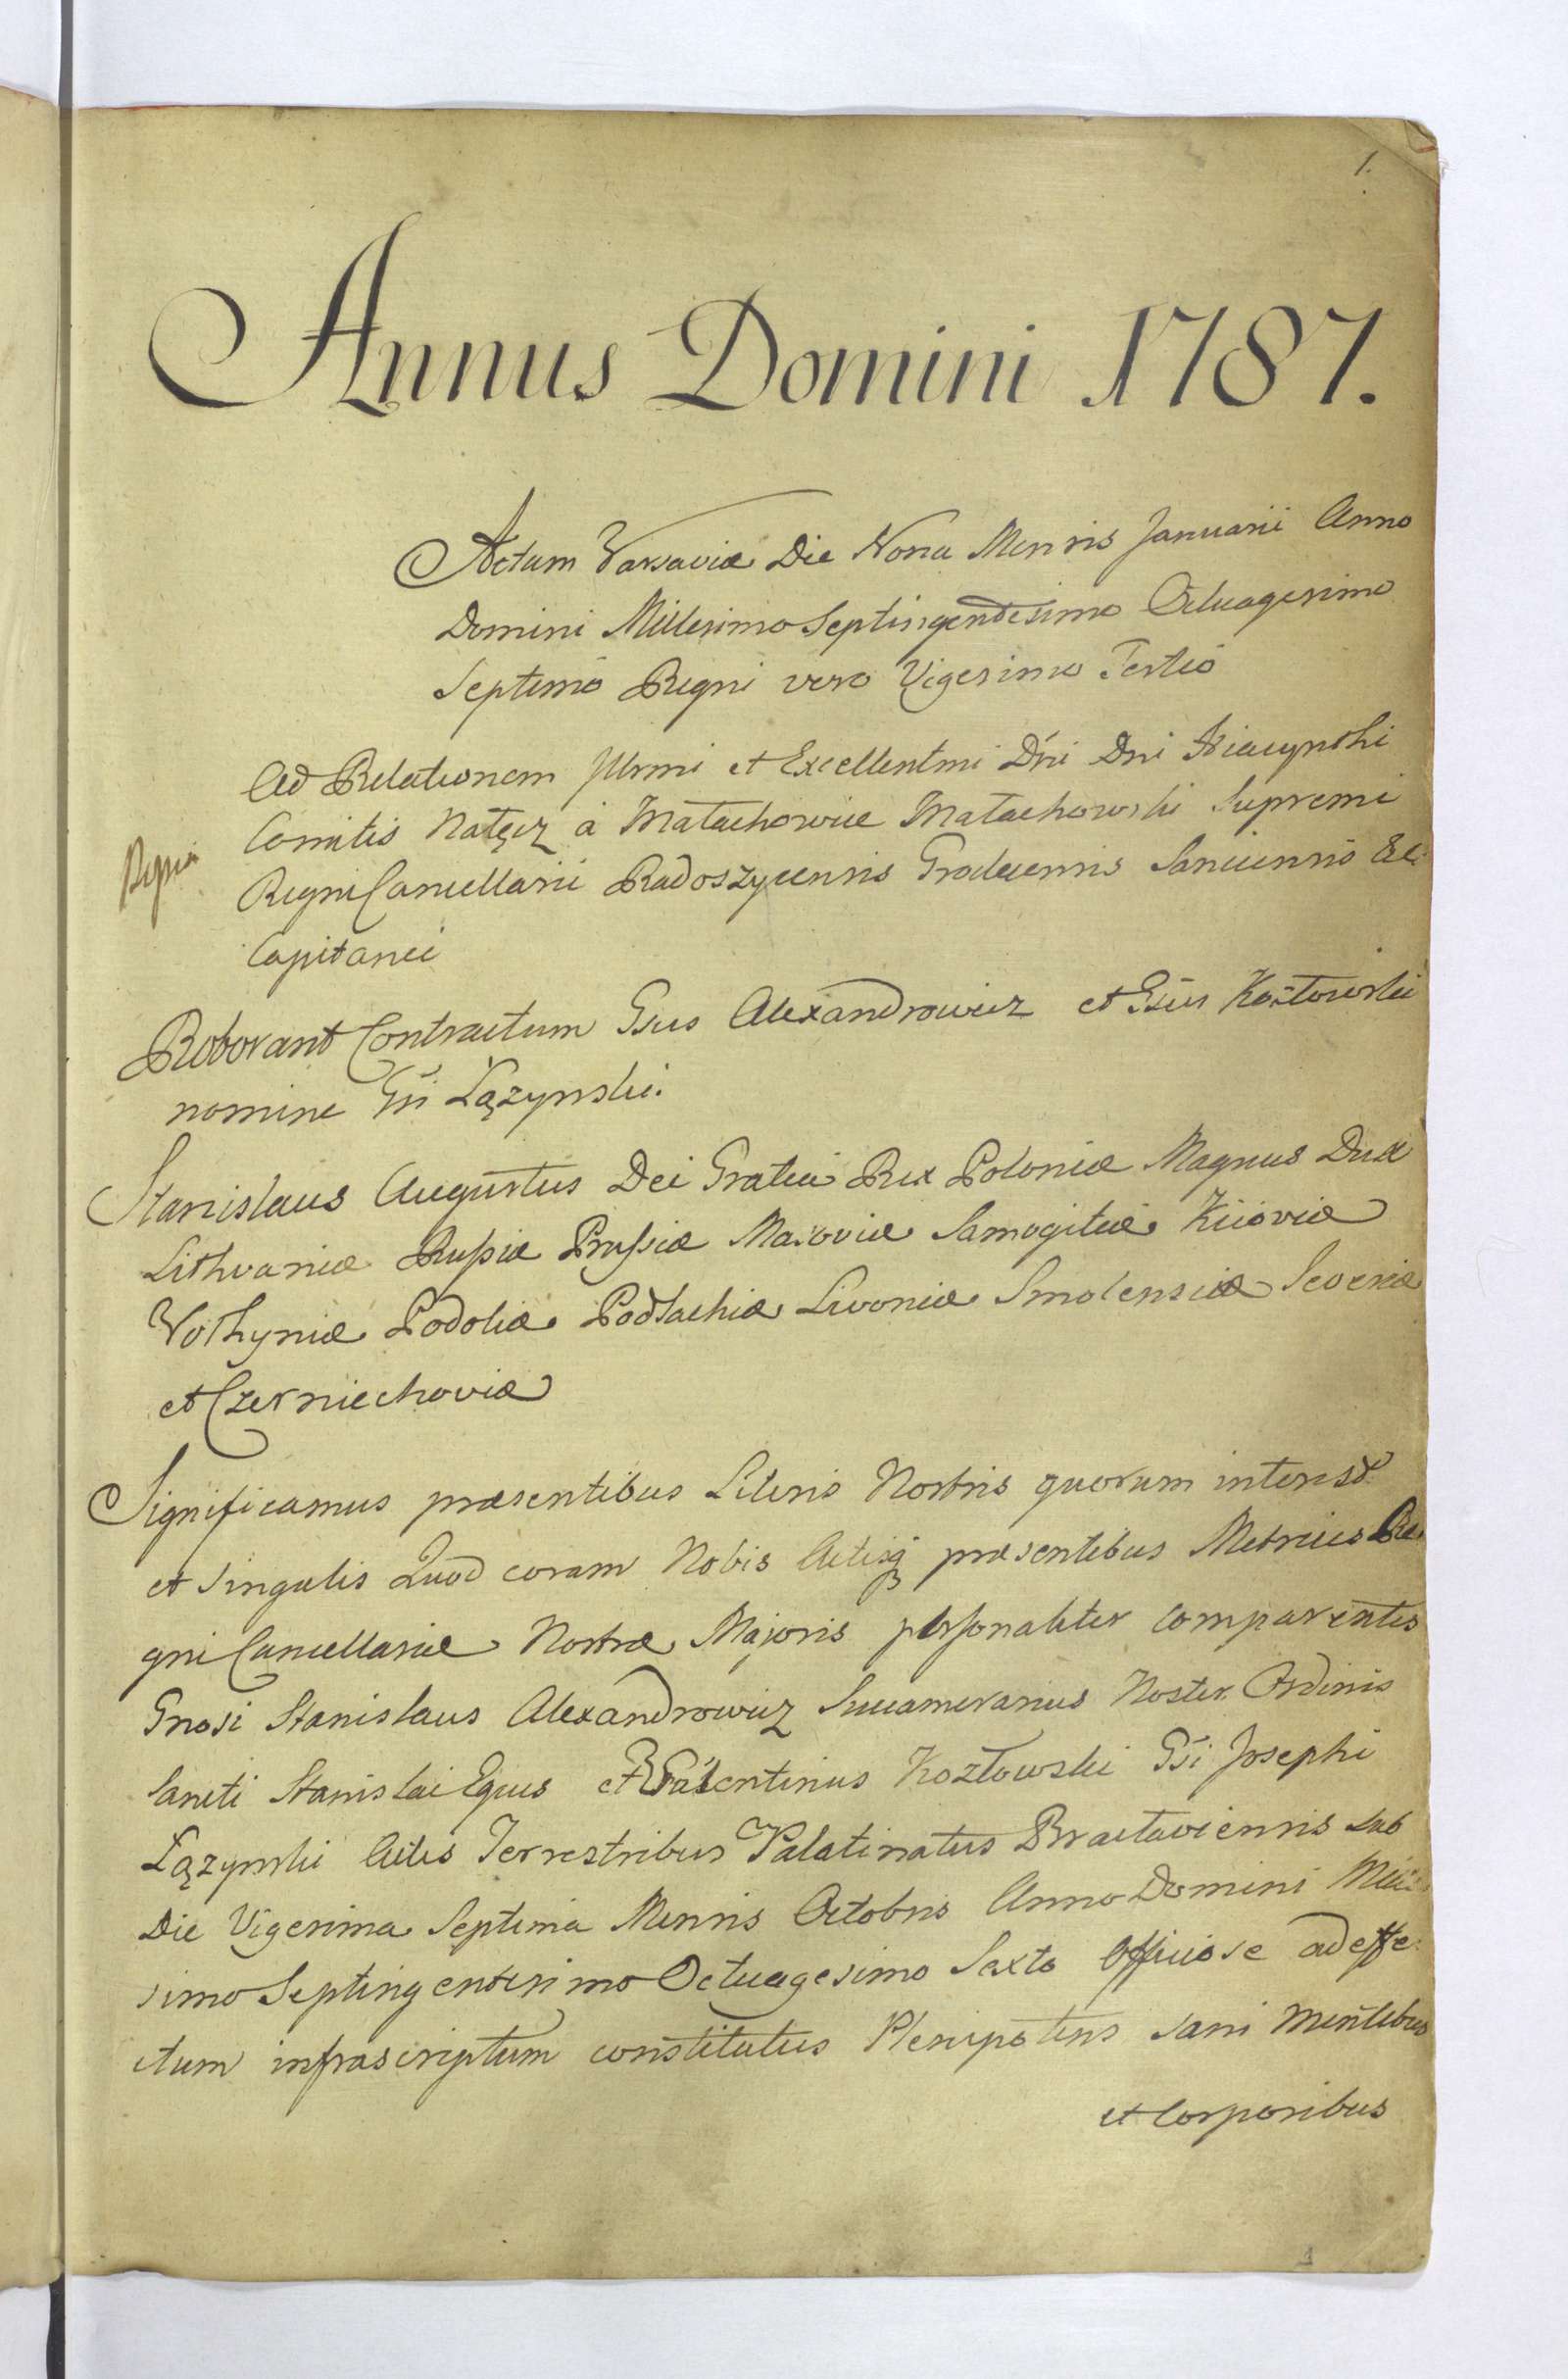 1.
Annus Domini 1787.
Actum Varsaviæ Die Nona Mensis Januarii Anno
Domini Millesimo Septingentesimo Octuagesimo
Septimo Regni vero Vigesimo Tertio
Ad Relationem Illrmi et Excellentmi Dni Dni Hiacynthi
Comitis Nałęcz à Małachowice Małachowski Supremi
Regni Cancellarii Radoszycensis Grodecensis Sanicensis Et
Capitanei
Roborant Contractum Gsus Alexandrowicz et Gsus Kozłowski
nomine Gsi Łązynski.
Stanislaus Augustus Dei Gratia Rex Poloniæ Magnus Dux
Lithvaniæ Russiæ Prussiæ Masoviæ Samogitiæ Kiioviæ
Vołhyniæ Podoliæ Podlachiæ Livoniæ Smolensiæ Severiæ
et Czerniechoviæ
Significamus præsentibus Literis Nostris quorum interest
et singulis Quod coram Nobis Actisq præsentibus Metrices Re
gni Cancellariæ Nostræ Majoris personaliter comparentes
Gnosi Stanislaus Alexandrowicz Succamerarius Noster Ordinis
Sancti Stanislai Eques et Valentinus Kozłowski Gsi Josephi
Łązynski Actis Terrestribus Palatinatus Bractaviensis sub
Die Vigesima Septima Mensis Octobris Anno Domini Mille
simo Septingentesimo Octuagesimo Sexto Officiose ad effe
ctum infrascriptum constitutus Plenipotens sani mentibus
et Corporibus
1